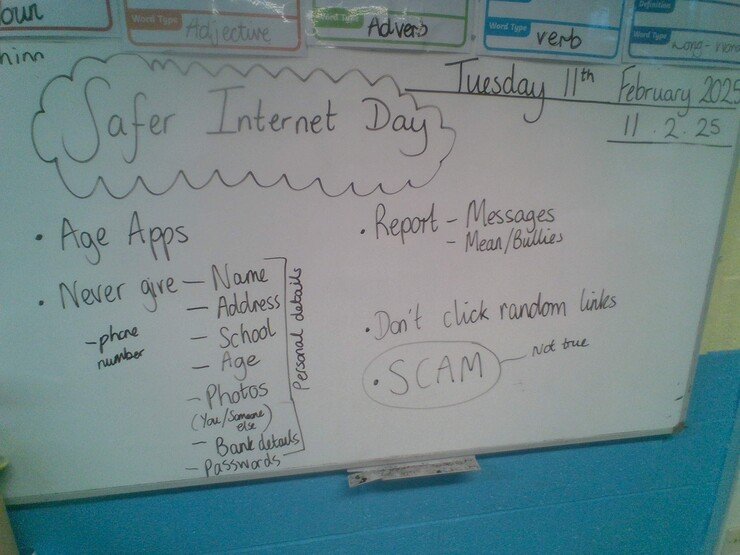 Word Type
Adjective
Word Type
Adverb
Word Type
verb
Definition
Word Type
Safer Internet Day
Tuesday 11th February 2025
11.2.25
• Age Apps
• Never give — Name
— Address
— School
— Age
— Photos
(You/Someone else)
— Bank details
— Passwords
- phone number
Personal details
• Report — Messages
- Mean/Bullies
• Don't click random links
• SCAM — Not true